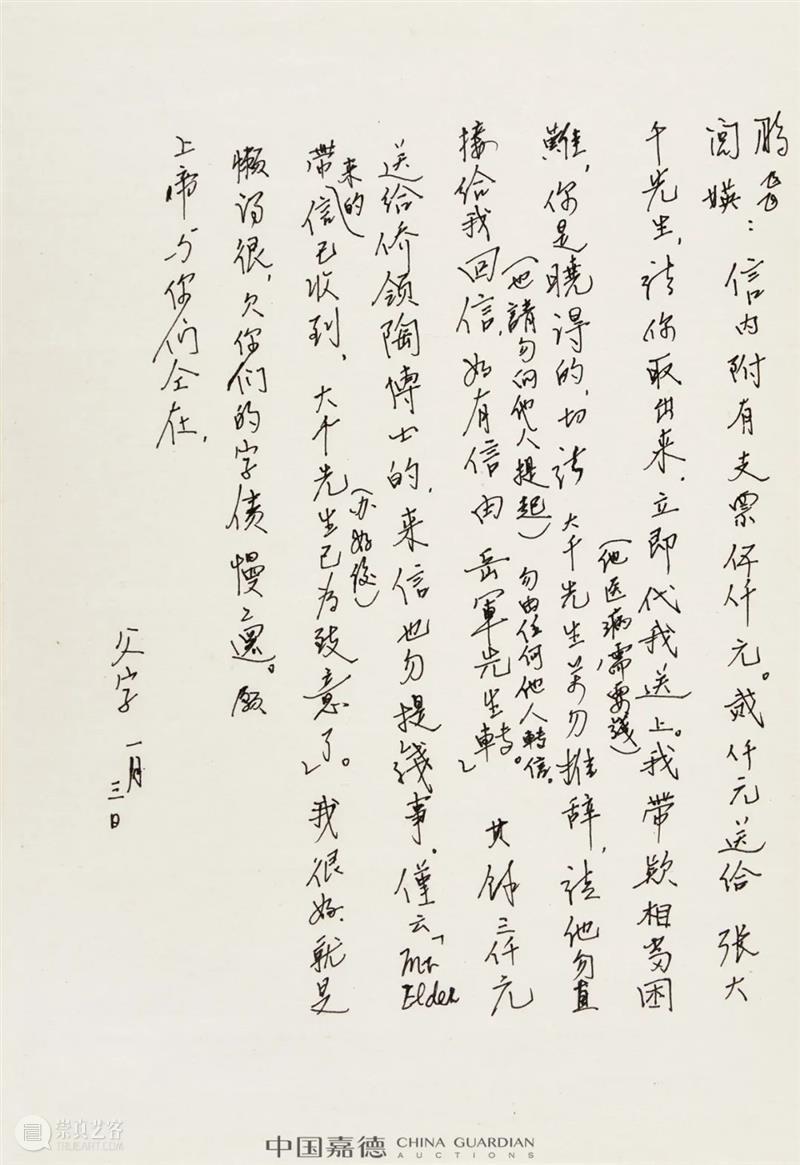 鹏飞
閭媖：信内附有支票伍仟元。貳仟元送给 张大
千先生，请你取出来，立即代我送上。我带款相当困
（他医病需要钱）
難，你是曉得的，切请 大千先生万勿推辞，请他勿直
（也請勿向他人提起）勿由任何他人轉信。
接给我回信，如有信由岳軍先生轉。」 其馀三仟元
送给侨领陶博士的，来信也勿提錢事。僅云「Mr. Elder
来的
（办好後）
帶信已收到，大千先生已为致意了」。我很好，就是
懒得很，欠你们的字债慢々還。願
上帝与你们仝在，
父字 一月三日
崇真艺客
中国嘉德 CHINA GUARDIAN
AUCTIONS